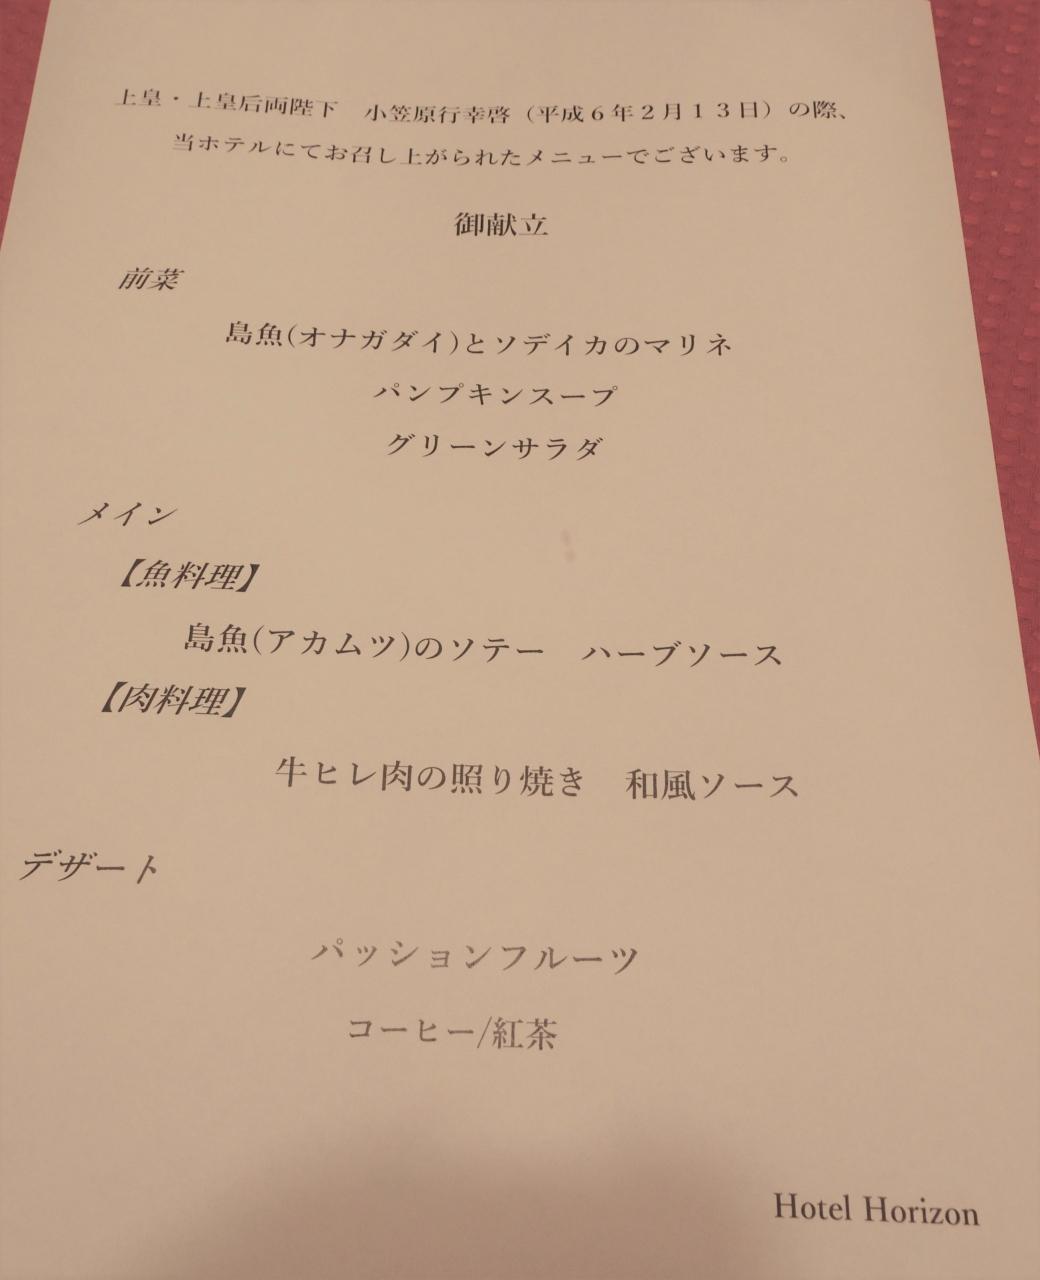 上皇・上皇后両陛下　小笠原行幸啓（平成６年２月１３日）の際、
当ホテルにてお召し上がられたメニューでございます。
御献立
前菜
島魚(オナガダイ)とソデイカのマリネ
パンプキンスープ
グリーンサラダ
メイン
【魚料理】
島魚(アカムツ)のソテー　ハーブソース
【肉料理】
牛ヒレ肉の照り焼き　和風ソース
デザート
パッションフルーツ
コーヒー/紅茶
Hotel Horizon